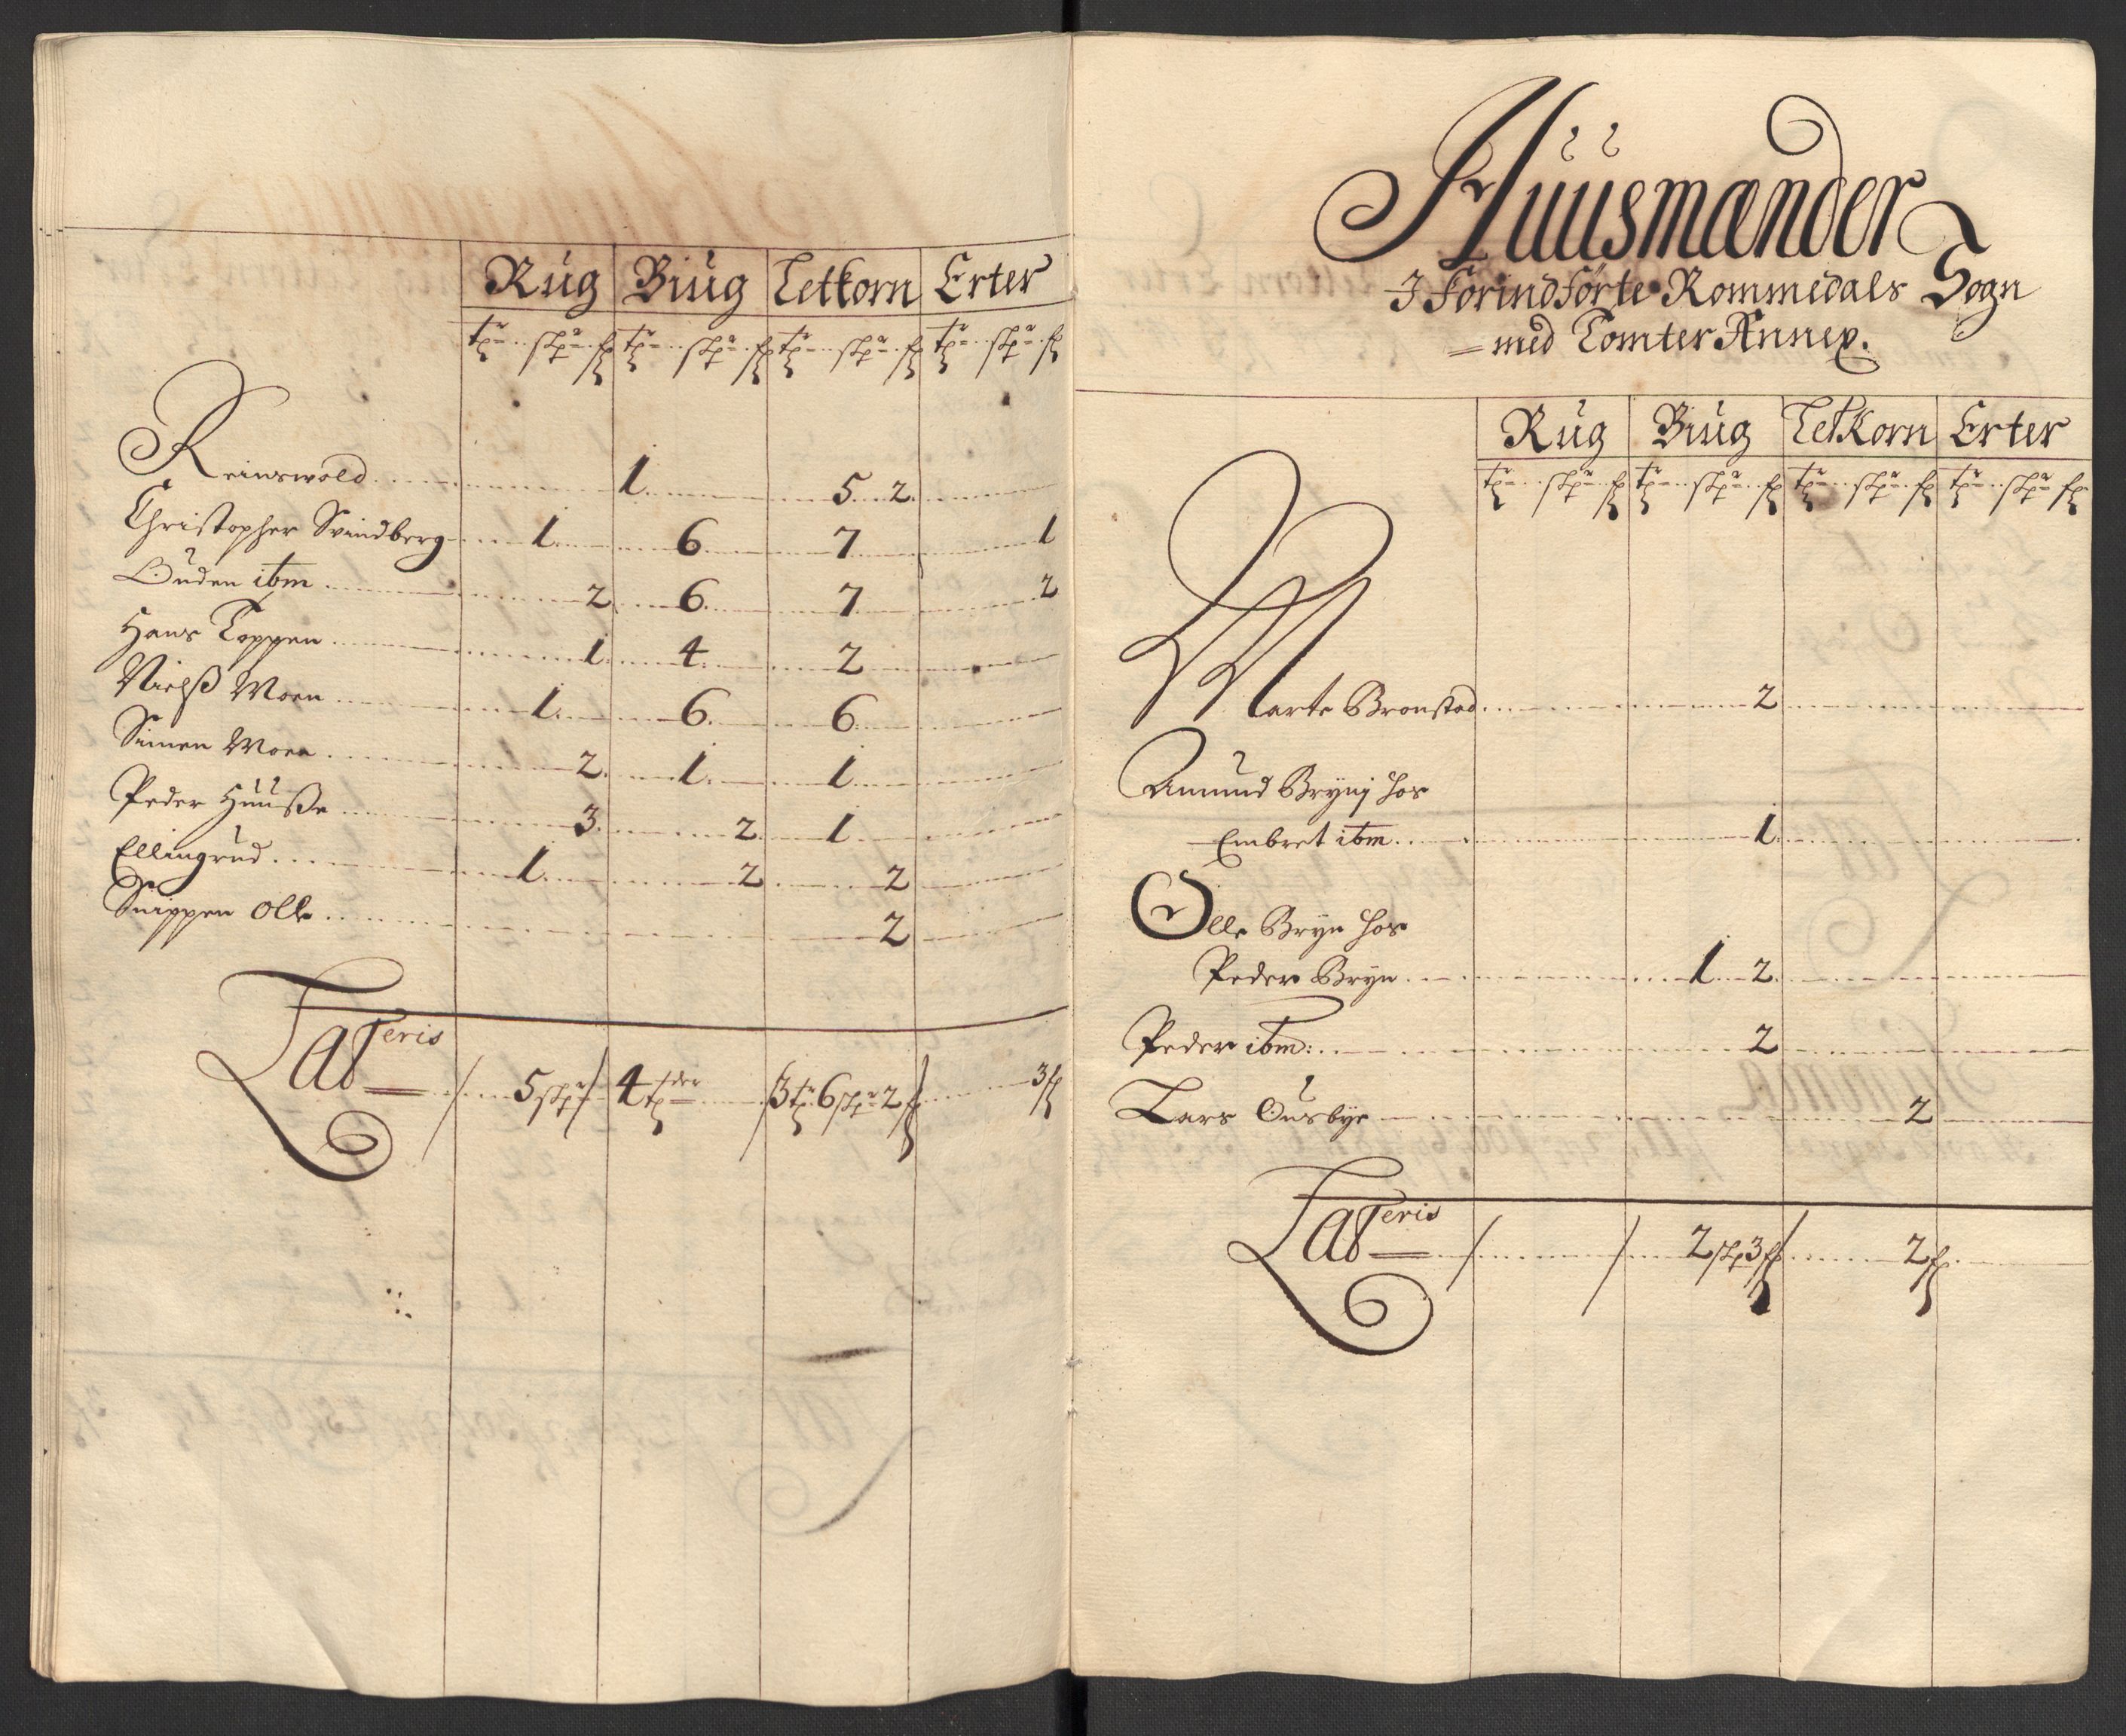 Rüg Biüg Tetkorn Erter
tr. skpr. fr. tr. skpr. fr. tr. skpr. fr. tr. skpr. fr.
Reinswold 1 5 2
Christopher Svindberg 1 6 7 1
Ouden ibm 2 6 7 2
Hans Toppen 1 4 2
Nielß Moen 1 6 6
Simen Moen 2 1 1
Peder Huuße 3 2 1
Ellingrud 1 2 2
Snippen Olle 2
Lateris 5 skpr 4 tder 3 tr 6 skpr 2 f 3 f
Huusmænder
I Forindførte Rommedals Sogn
med Tomter Annex.
Rüg Biüg Tetkorn Erter
tr. skpr. fr. tr. skpr. fr. tr. skpr. fr. tr. skpr. fr.
Marte Bronstad 2
Amund Bryni hos
Embret ibm 1
Olle Bryn hos
Peder Bryn 1 2
Peder ibm: 2
Lars Ousbye 2
Lateris 2 skp 3 f 2 f